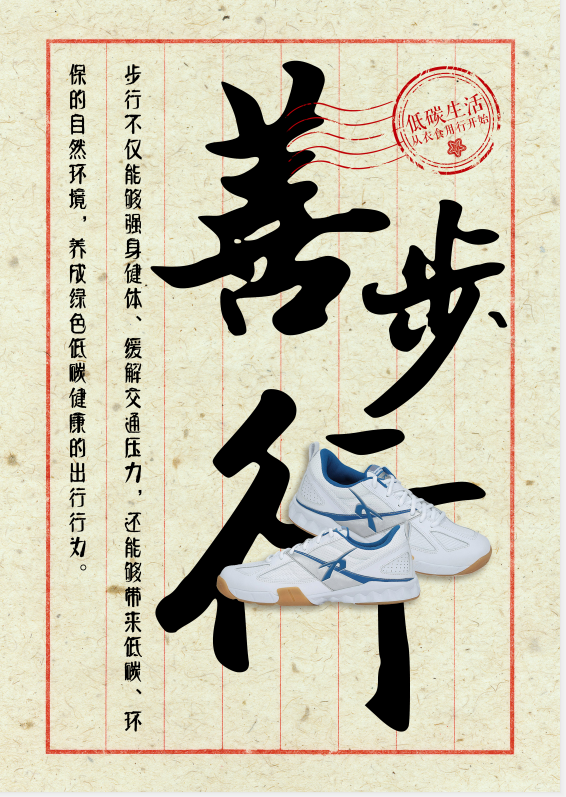 善
步
行
低碳生活
从衣食用行开始
步行不仅能够强身健体、缓解交通压力，还能够带来低碳、环
保的自然环境，养成绿色低碳健康的出行行为。